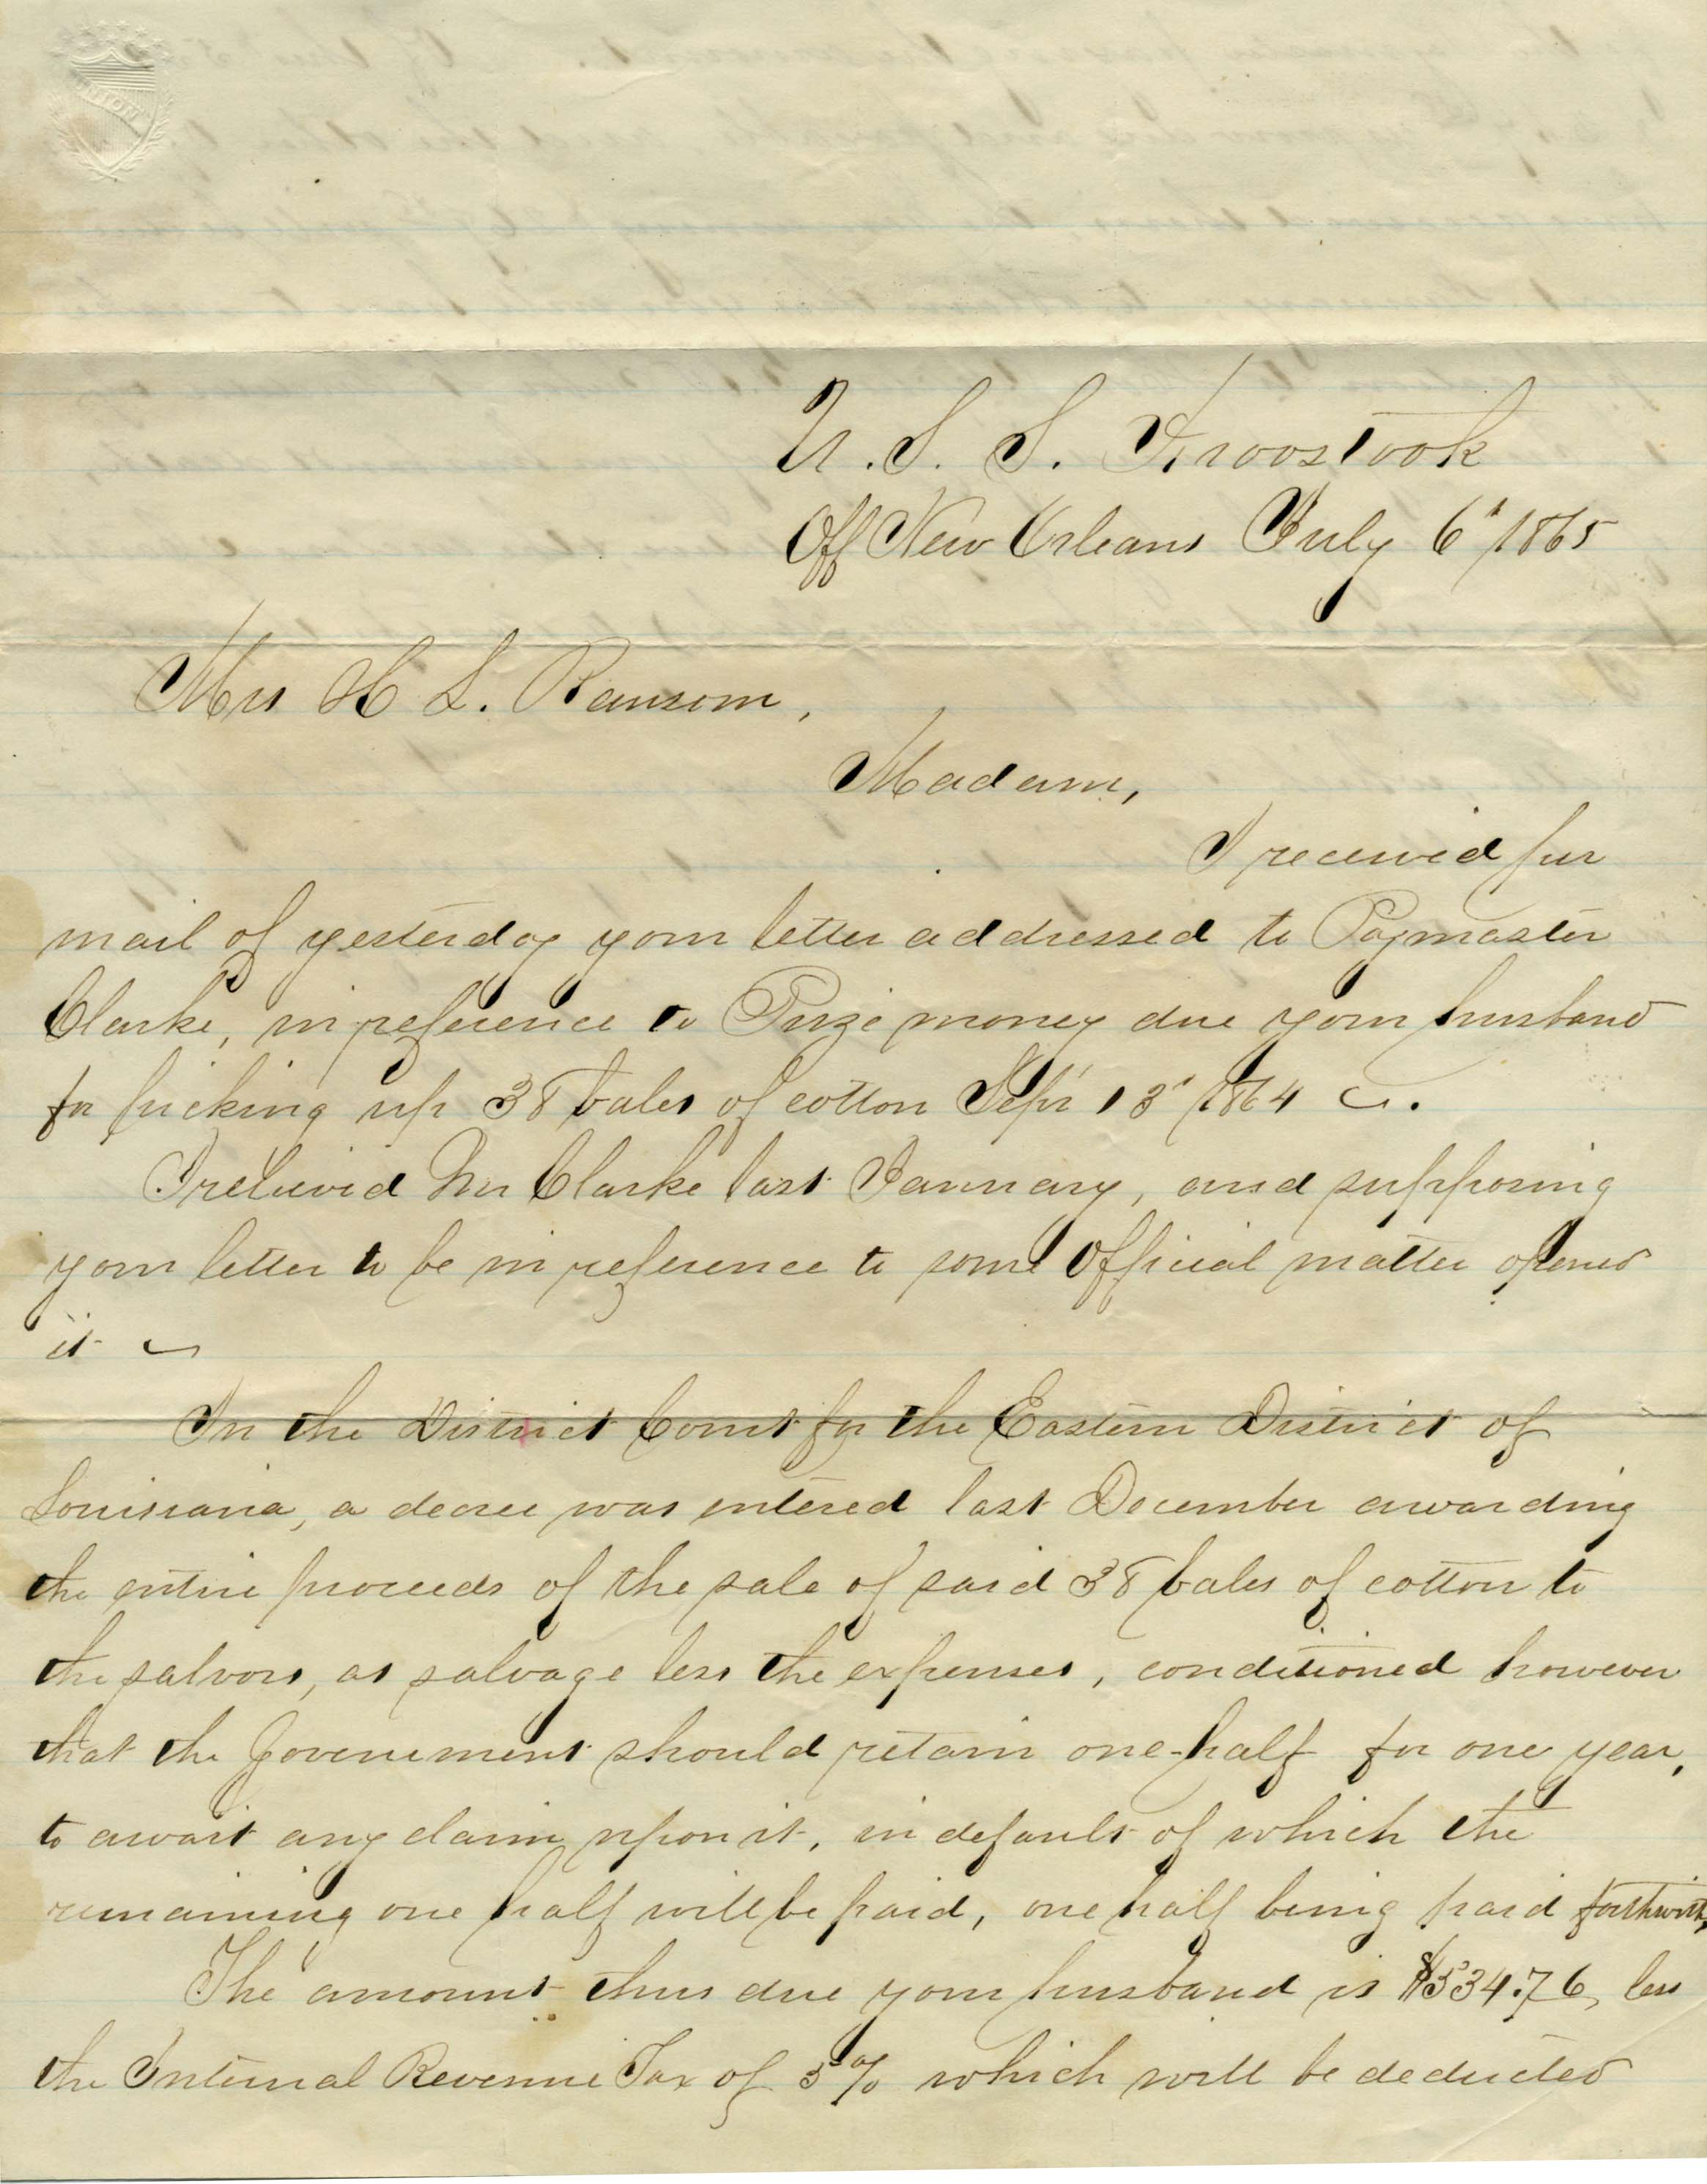 UNION
U. S. S. Aroostook
Off New Orleans July 6" 1865
Mrs H L. Ransom,
Madam,
I received per
mail of yesterday your letter addressed to Paymaster
Clarke, in reference to Prize money due your husband
for picking up 38 bales of cotton Sept 13" 1864
I relieved Mr Clarke last January, and supposing
your letter to be in reference to some Official matter opened
it
In the District Court for the Eastern District of
Louisiana, a decree was entered last December awarding
the entire proceeds of the sale of said 38 bales of cotton to
the salvors, as salvage less the expenses, conditioned however
that the Government should retain one-half for one year,
to await any claim upon it, in default of which the
remaining one half will be paid, one half being paid forthwith,
The amount thus due your husband is $534.76, less
the Internal Revenue Tax of 5% which will be deducted